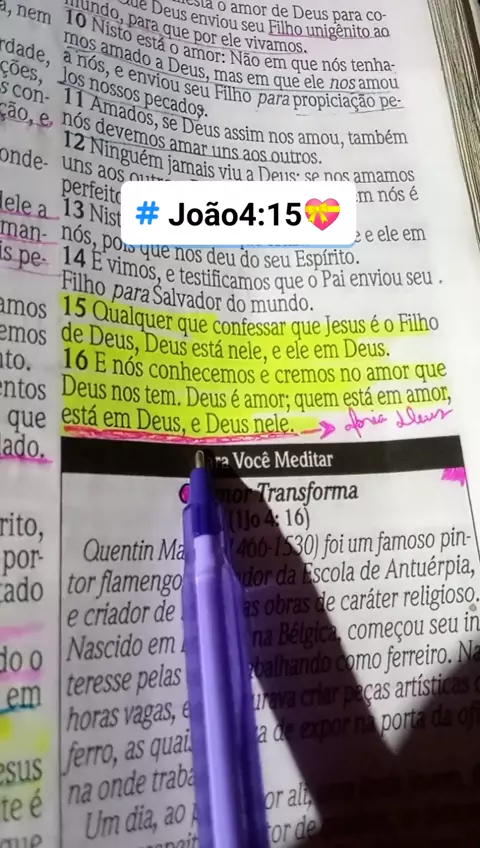 o amor de Deus para co-
Deus enviou seu Filho unigênito ao
mundo, para que por ele vivamos.
10 Nisto está o amor: Não em que nós tenha-
mos amado a Deus, mas em que ele nos amou
a nós, e enviou seu Filho para propiciação pe-
los nossos pecados.
11 Amados, se Deus assim nos amou, também
nós devemos amar uns aos outros.
12 Ninguém jamais viu a Deus; se nos amamos
uns aos
perfeito
m nós é
# João4:15💝
13 Nist
e e ele em
nós, pois que nos deu do seu Espírito.
14 E vimos, e testificamos que o Pai enviou seu
Filho para Salvador do mundo.
15 Qualquer que confessar que Jesus é o Filho
de Deus, Deus está nele, e ele em Deus.
16 E nós conhecemos e cremos no amor que
Deus nos tem. Deus é amor; quem está em amor,
está em Deus, e Deus nele.
Você Meditar
mor Transforma
(1Jo 4: 16)
Quentin Ma 1466-1530) foi um famoso pin-
tor flamengo dor da Escola de Antuérpia,
e criador de as obras de caráter religioso.
Nascido em na Bélgica, começou seu in
teresse pelas balhando como ferreiro. Na
horas vagas, e urava criar peças artísticas
ferro, as quai a de expor na porta da ofi
na onde traba
Um dia, ao p or ali,
tor de
, nem
rdade,
ções,
s con-
ção, e
onde-
dele a
man-
is pe-
amos
emos
nto.
entos
que
lado.
rito,
por-
tado
do o
em
esus
te é
que